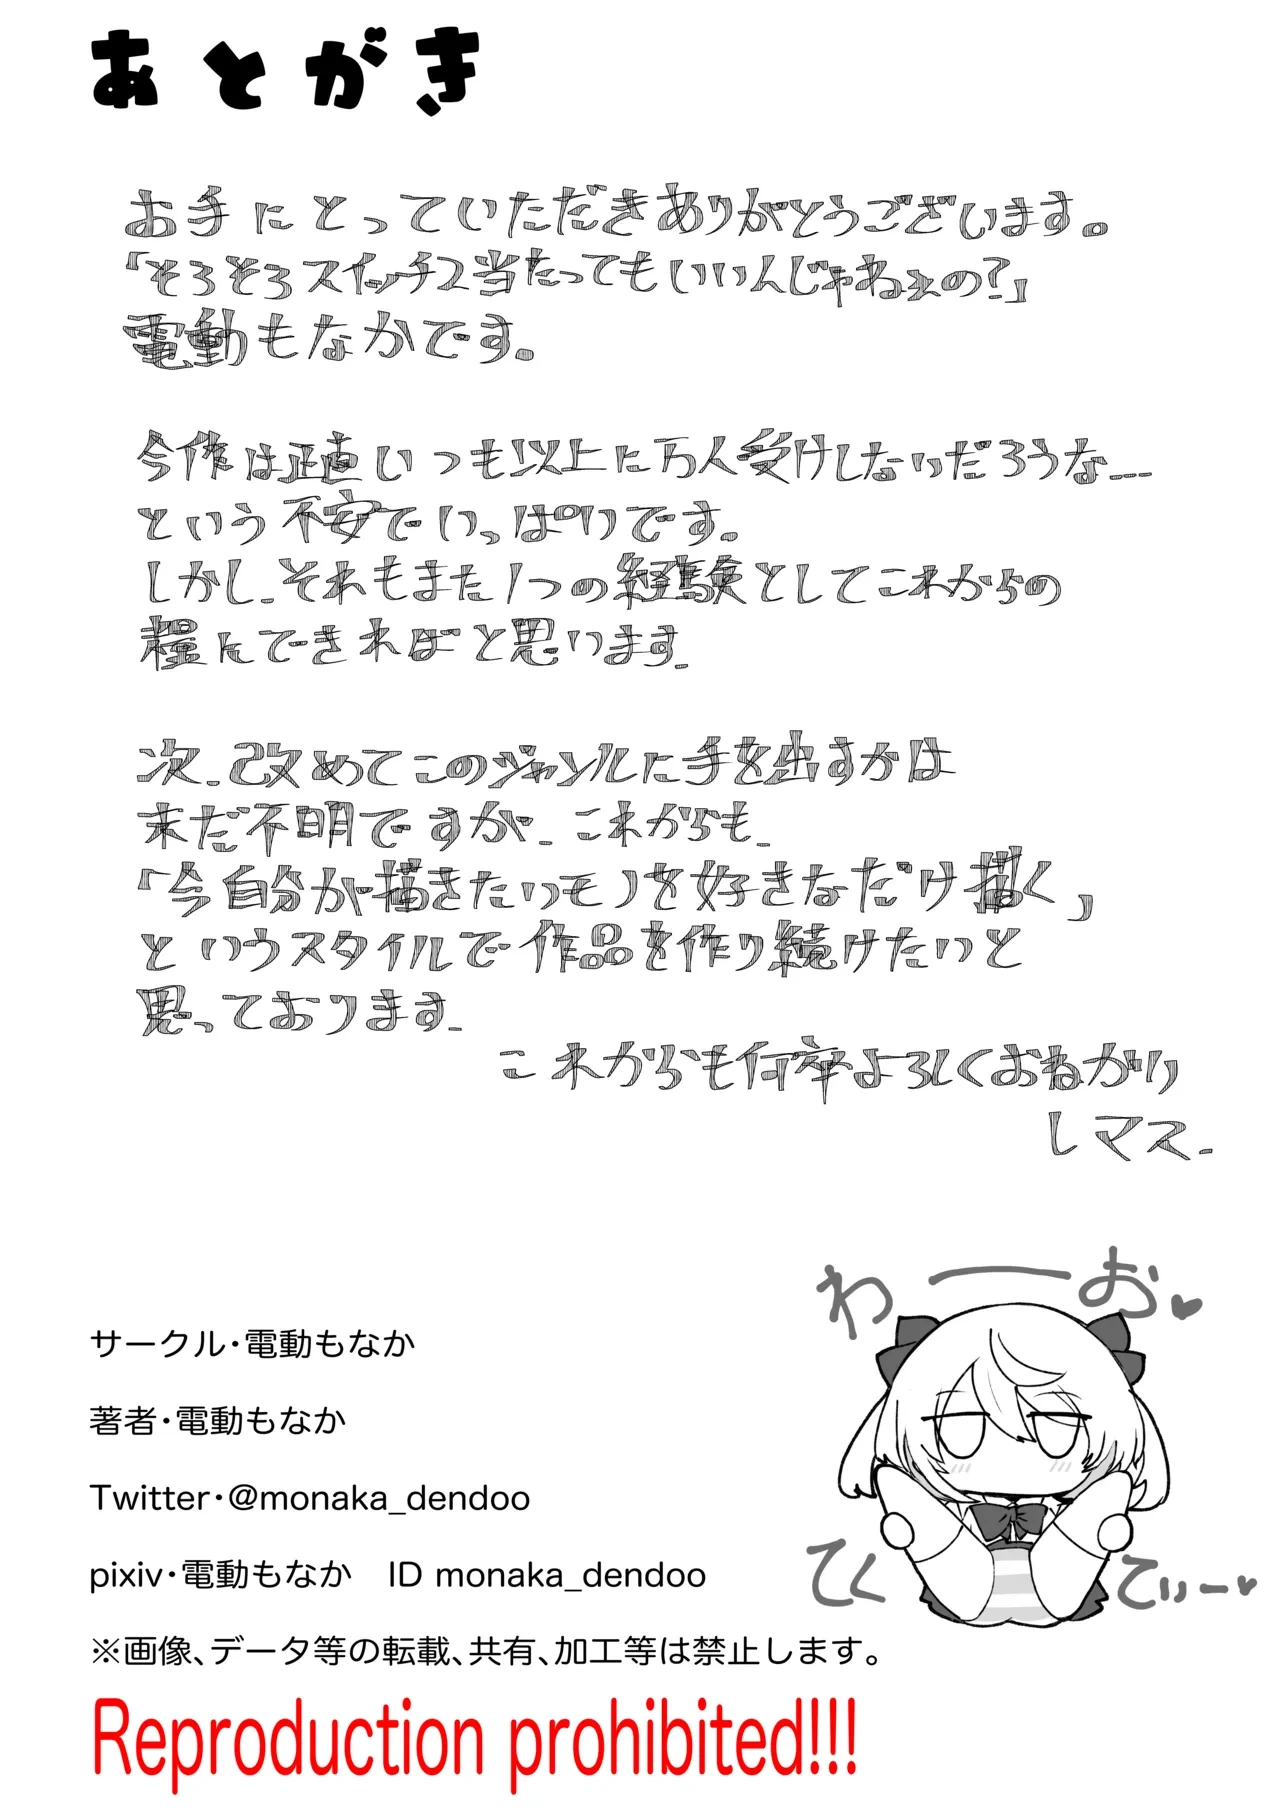 あとがき
お手にとっていただきありがとうございます。
「そろそろスイッチ2当たってもいいんじゃねぇの?」
電動もなかです。
今作は正直いつも以上に万人受けしないだろうな…
という不安でいっぱいです。
しかし、それもまた1つの経験としてこれからの
糧にできればと思います。
次、改めてこのジャンルに手を出すかは
未だ不明ですが、これからも、
「今自分が描きたいモノを好きなだけ描く」
というスタイルで作品を作り続けたいと
思っております。
これからも何卒よろしくおねがい
しマス。
わーお♥
てくてぃー♥
サークル・電動もなか
著者・電動もなか
Twitter・@monaka_dendoo
pixiv・電動もなか ID monaka_dendoo
※画像、データ等の転載、共有、加工等は禁止します。
Reproduction prohibited!!!